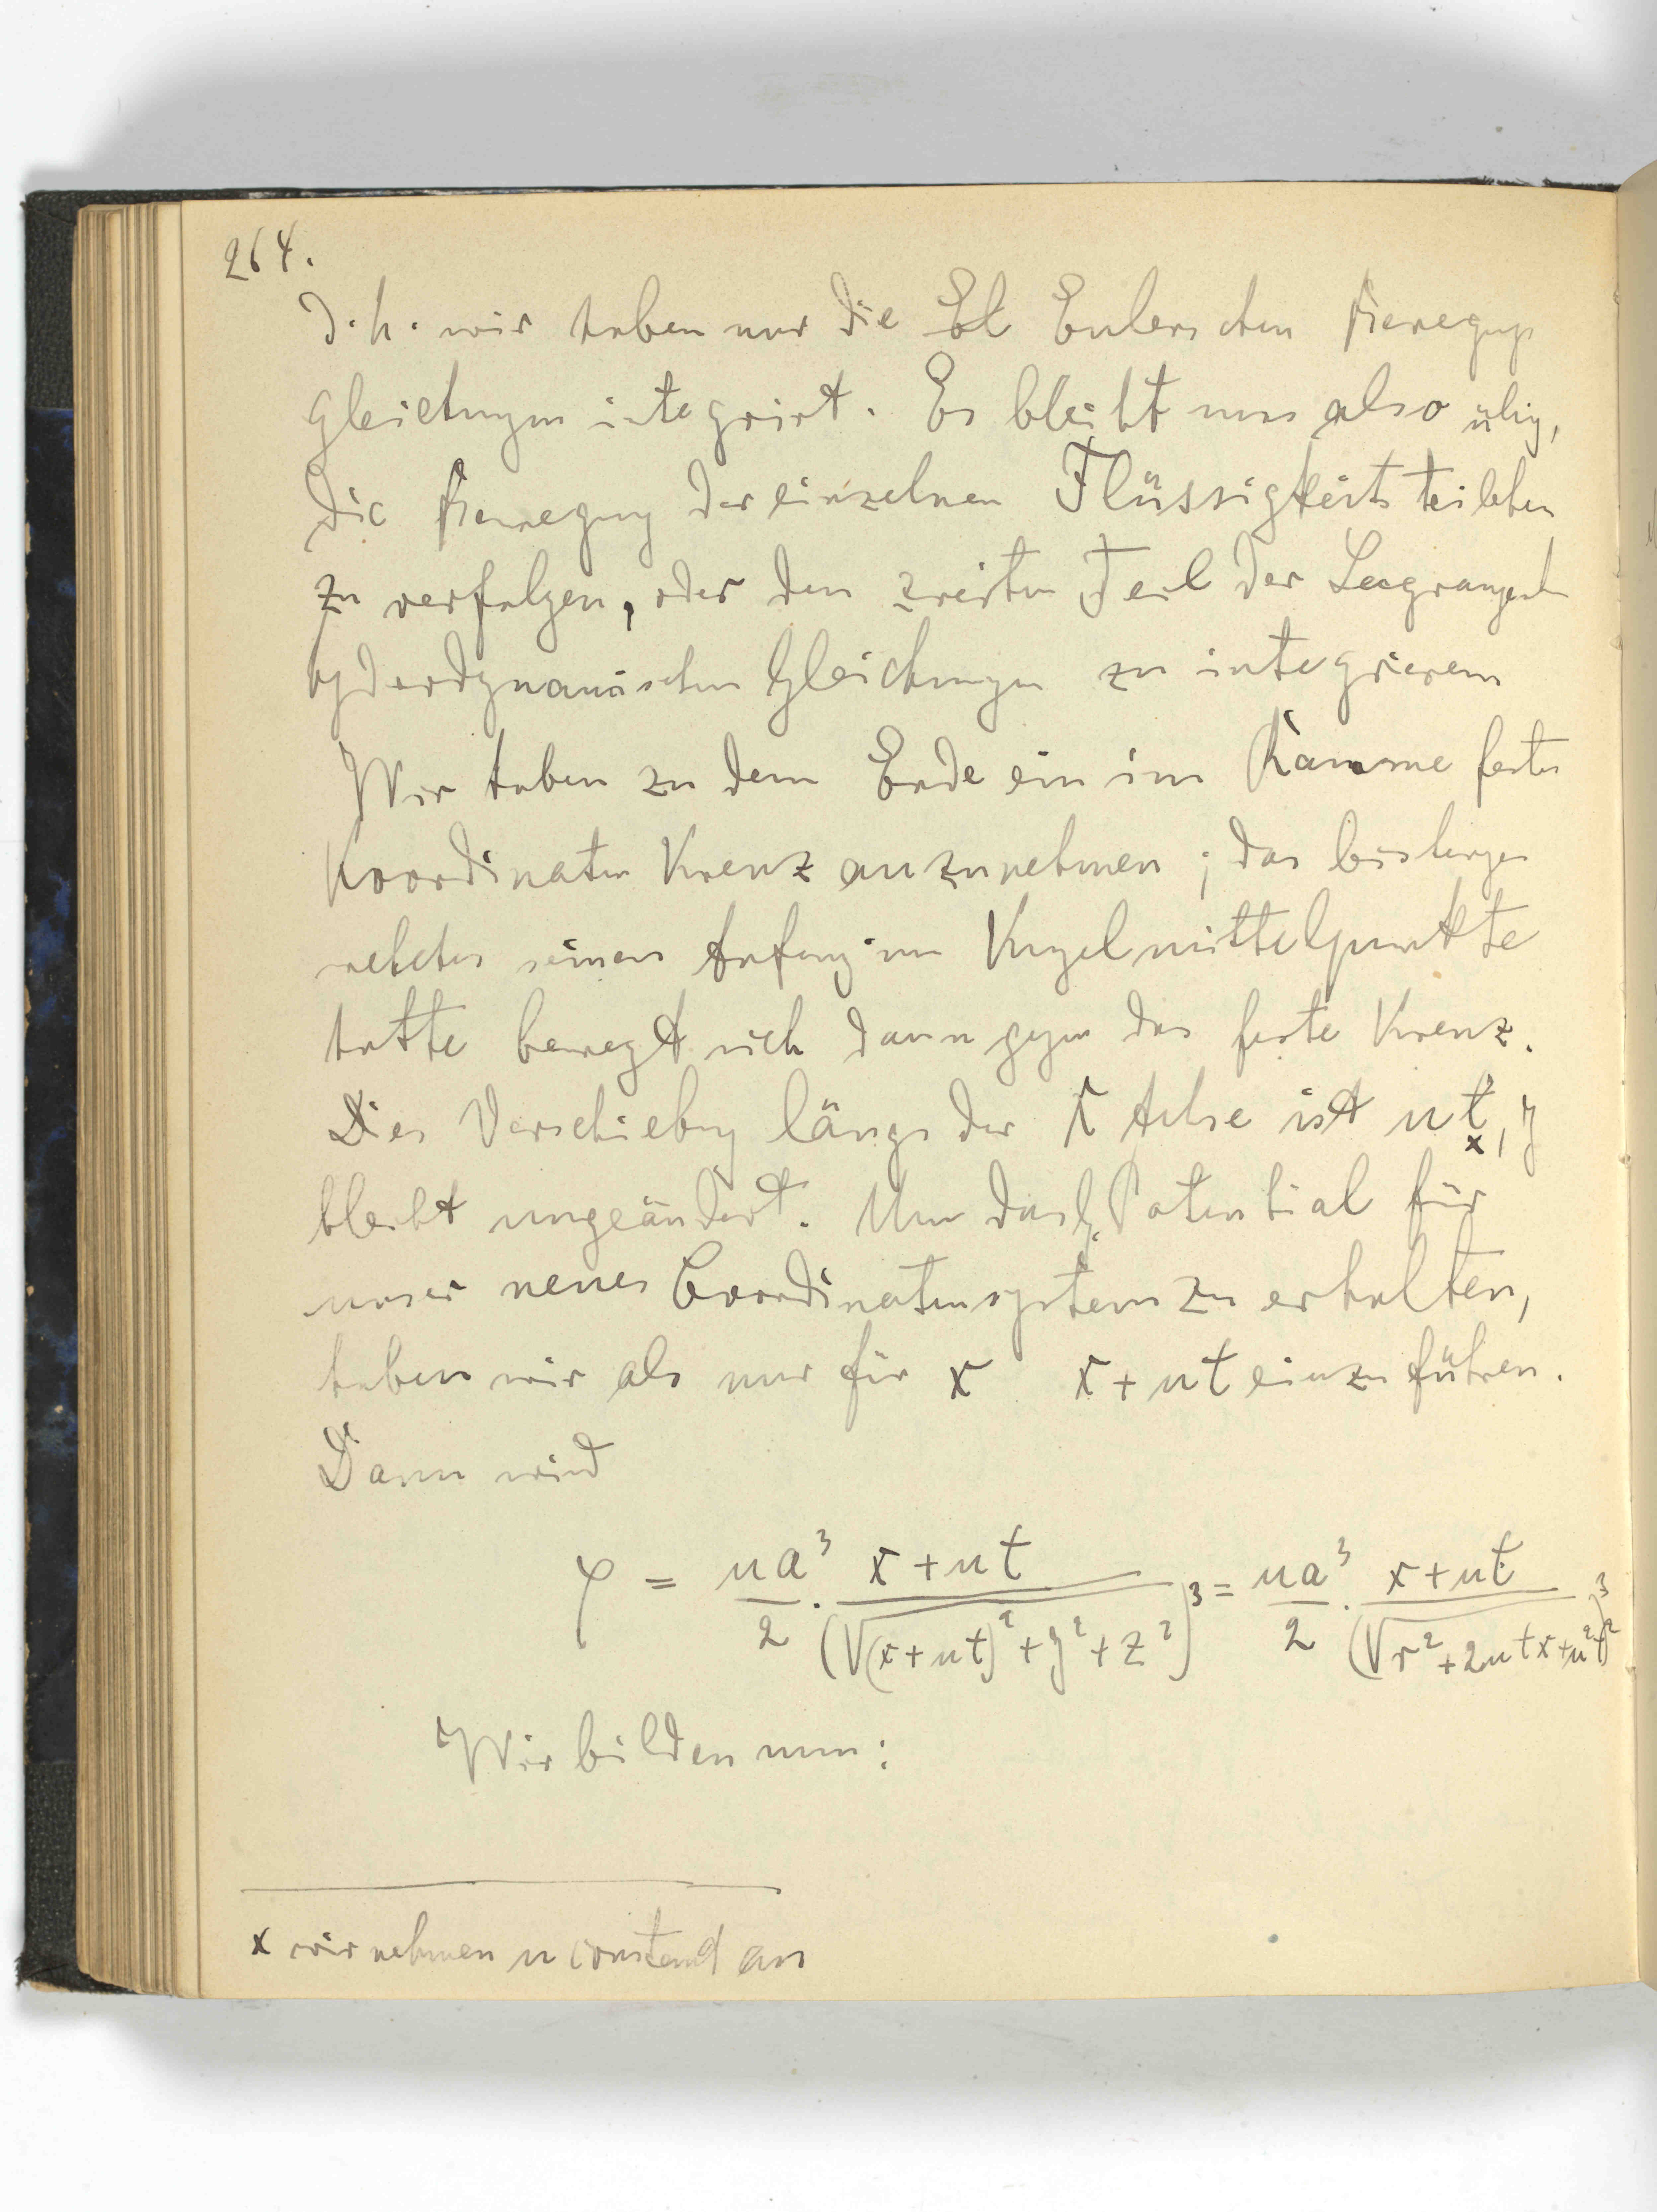 264.
d.h. wir haben nur die El Eulerschen Bewegungs
gleichungen integrirt. Es bleibt uns also übrig,
die Bewegung der einzelnen Flüssigkeitsteilchen
zu verfolgen, oder den zweiten Teil der Lagrangeschen
hyderdynamischen Gleichungen zu integrieren
Wir haben zu dem Ende ein im Raume festes
Koordinaten Kreuz anzunehmen; das bisherige
welches seinen Anfang im Kugelmittelpunkte
hatte bewegt sich dann gegen das feste Kreuz.
Die Verschiebung längs der x Achse ist ut, y
x
bleibt ungeändert. Um das Potential für
unser neues Coordinatensystem zu erhalten,
haben wir als nur für x x+ut einzuführen.
Dann wird
φ = ua³/2 · (x+ut)/(√(x+ut)²+y²+z²)³ = ua³/2 · (x+ut)/(√r²+2utx+u²t²)³
Wir bilden nun:
x wir nehmen u constand an